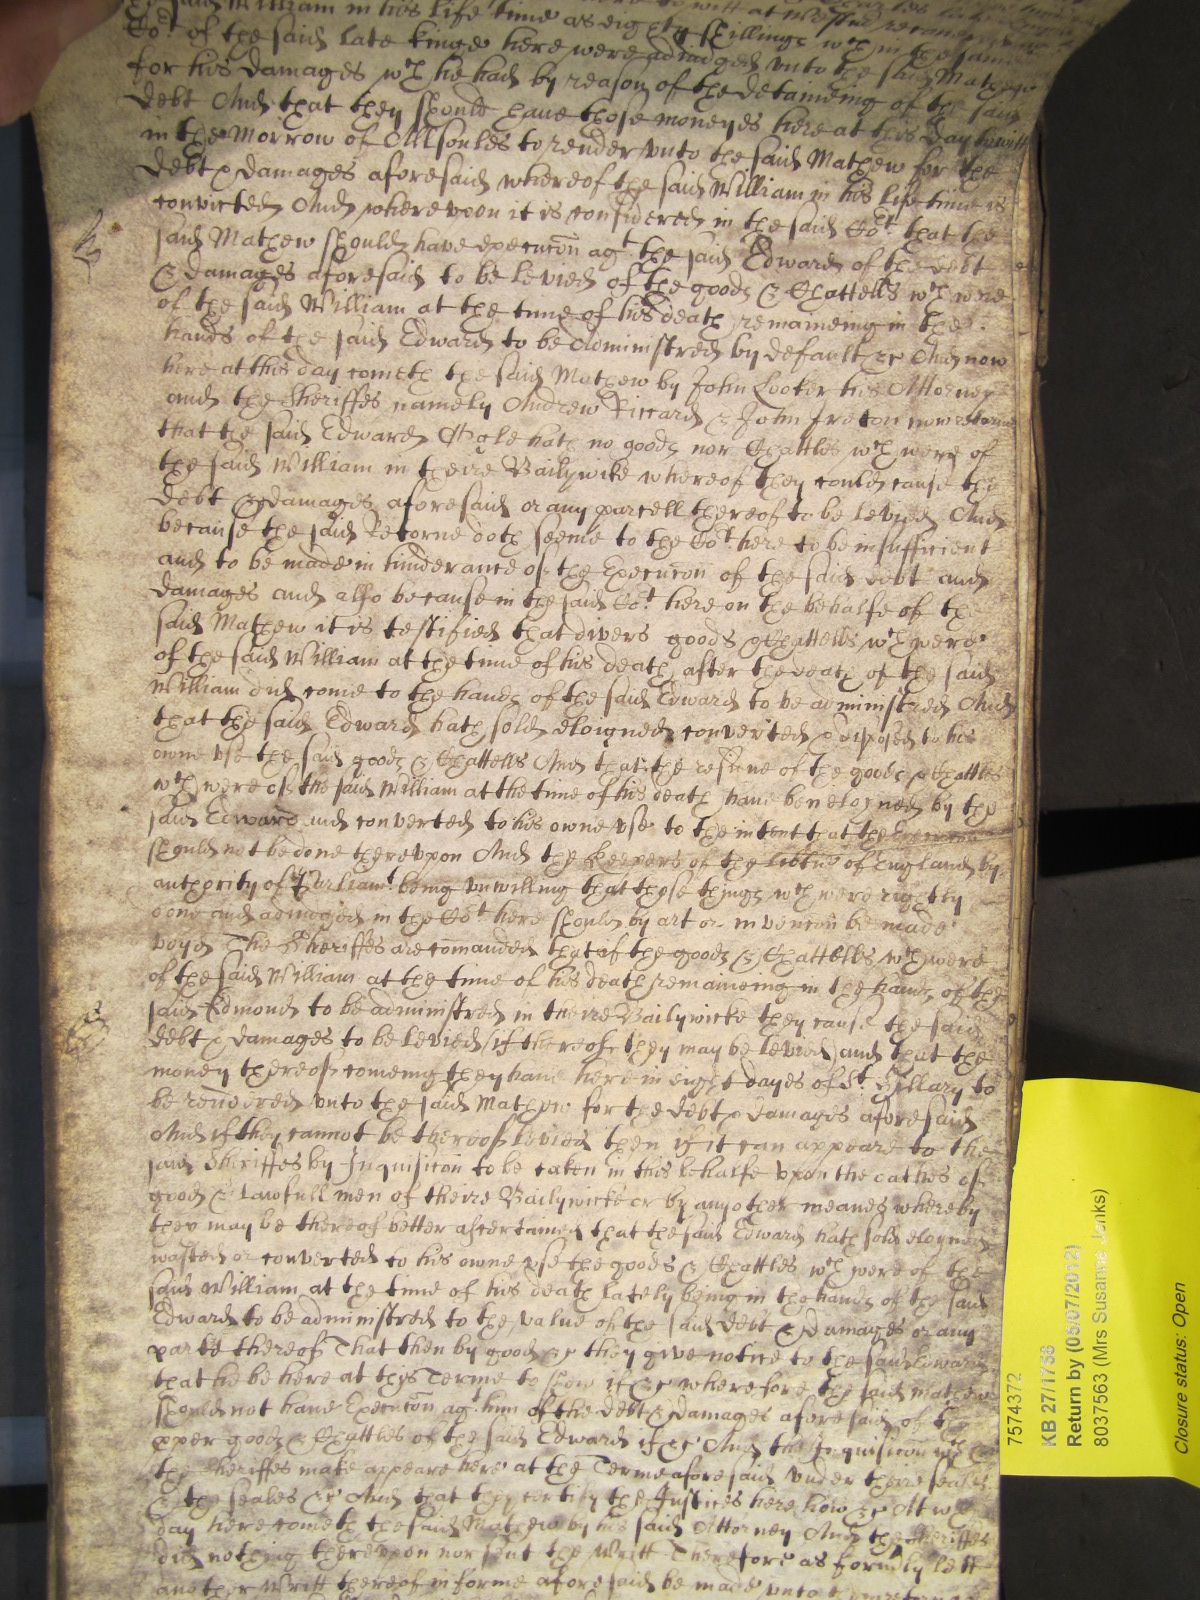 said William in his life time as eighty shillings wch in the same
Cot of the said late kinge here were adiudged vnto the said Mathew
for his damages wch he had by reason of the detaineing of the said
debt And that they should have those moneyes here at this day towitt
in the Morrow of Allsoules to render vnto the said Mathew for the
debt & damages aforesaid whereof the said William in his life time is
convicted And wherevpon it is considered in the said Cot that the
said Mathew should have execucon agt the said Edward of the debt
& damages aforesaid to be levied of the goods & Chattells wch were
of the said William at the time of his death remaineing in the
hands of the said Edward to be Administred by default &c And now
here at this day cometh the said Mathew by John Cooker his Attorney
and the Sheriffes namely Andrew Riccard & John Ireton now retorne
that the said Edward hath no goods nor Chattles wch were of
the said William in theire Bailywicke whereof they could cause the
debt & damages aforesaid or any parcell thereof to be levied And
because the said Retorne doth seeme to the Cot here to be insufficient
and to be made in hinderance of the Execucon of the said debt and
damages and also because in the said Cot here on the behalfe of the
said Mathew it is testified that divers goods & Chattells wch were
of the said William at the time of his death after the death of the said
William did come to the hands of the said Edward to be administred And
that the said Edward hath sold eloigned converted & disposed to his
owne vse the said goods & Chattells And that the residue of the goods & Chattles
wch were of the said William at the time of his death have ben eloyned by the
said Edward and converted to his owne vse to the intent that the Execucon
should not be done therevpon And the keepers of the libtie of England by
authority of Parliamt being vnwilling that those things wch were rightly
done and adiudged in the Cot here should by art or invencon be made
voyd The Sheriffes are comanded that of the goods & Chattells wch were
of the said William at the time of his death remaineing in the hands of the
said Edmond to be administred in theire Bailywicke they cause the said
debt & damages to be levied (if thereof they may be levied) and that the
money thereof comeing they have here in eight dayes of St Hillary to
be rendered vnto the said Mathew for the debt & damages aforesaid
And if they cannot be thereof levied then if it can appeare to the
said Sheriffes by Inquisicon to be taken in this behalfe vpon the oathes of
good & lawfull men of theire Bailywicke or by any other meanes whereby
they may be thereof better ascertained that the said Edward hath sold eloyned
wasted or converted to his owne vse the goods & Chattles wch were of the
said William at the time of his death lately being in the hands of the said
Edward to be administred to the value of the said debt & damages or any
parte thereof That then by good &c they give notice to the said Edward
that he be here at thys Terme to shew if &c wherefore the said Mathew
should not have Execucon agt him of the debt & damages aforesaid of the
pper goods & Chattles of the said Edward if &c And the Inquisicon wch
the Sheriffes make appeare here at the Terme aforesaid vnder theire seales
& the seales &c And that they certify the Justices here how &c At wch
day here cometh the said Mathew by his said Attorney And the Sheriffes
did nothing therevpon nor sent the Writt Therefore as formerly lett
another Writt thereof in forme aforesaid be made vnto
7574372
KB 27/1758
Return by (05/07/2012)
8037563 (Mrs Susanne Jenks)
Closure status: Open